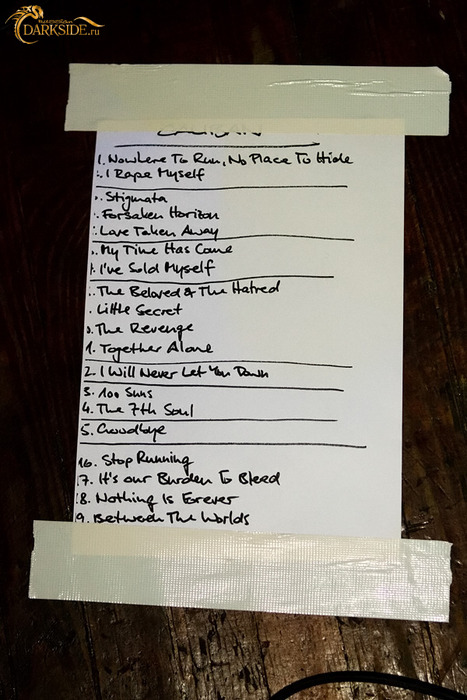 RUSSIAN
DARKSIDE.ru
1. Nowhere To Run, No Place To Hide
. I Rape Myself
. Stigmata
. Forsaken Horizon
. Love Taken Away
. My Time Has Come
. I've Sold Myself
. The Beloved & The Hatred
. Little Secret
. The Revenge
1. Together Alone
2. I Will Never Let You Down
3. 100 Suns
4. The 7th Soul
5. Goodbye
16. Stop Running
7. It's our Burden To Bleed
8. Nothing Is Forever
9. Between The Worlds